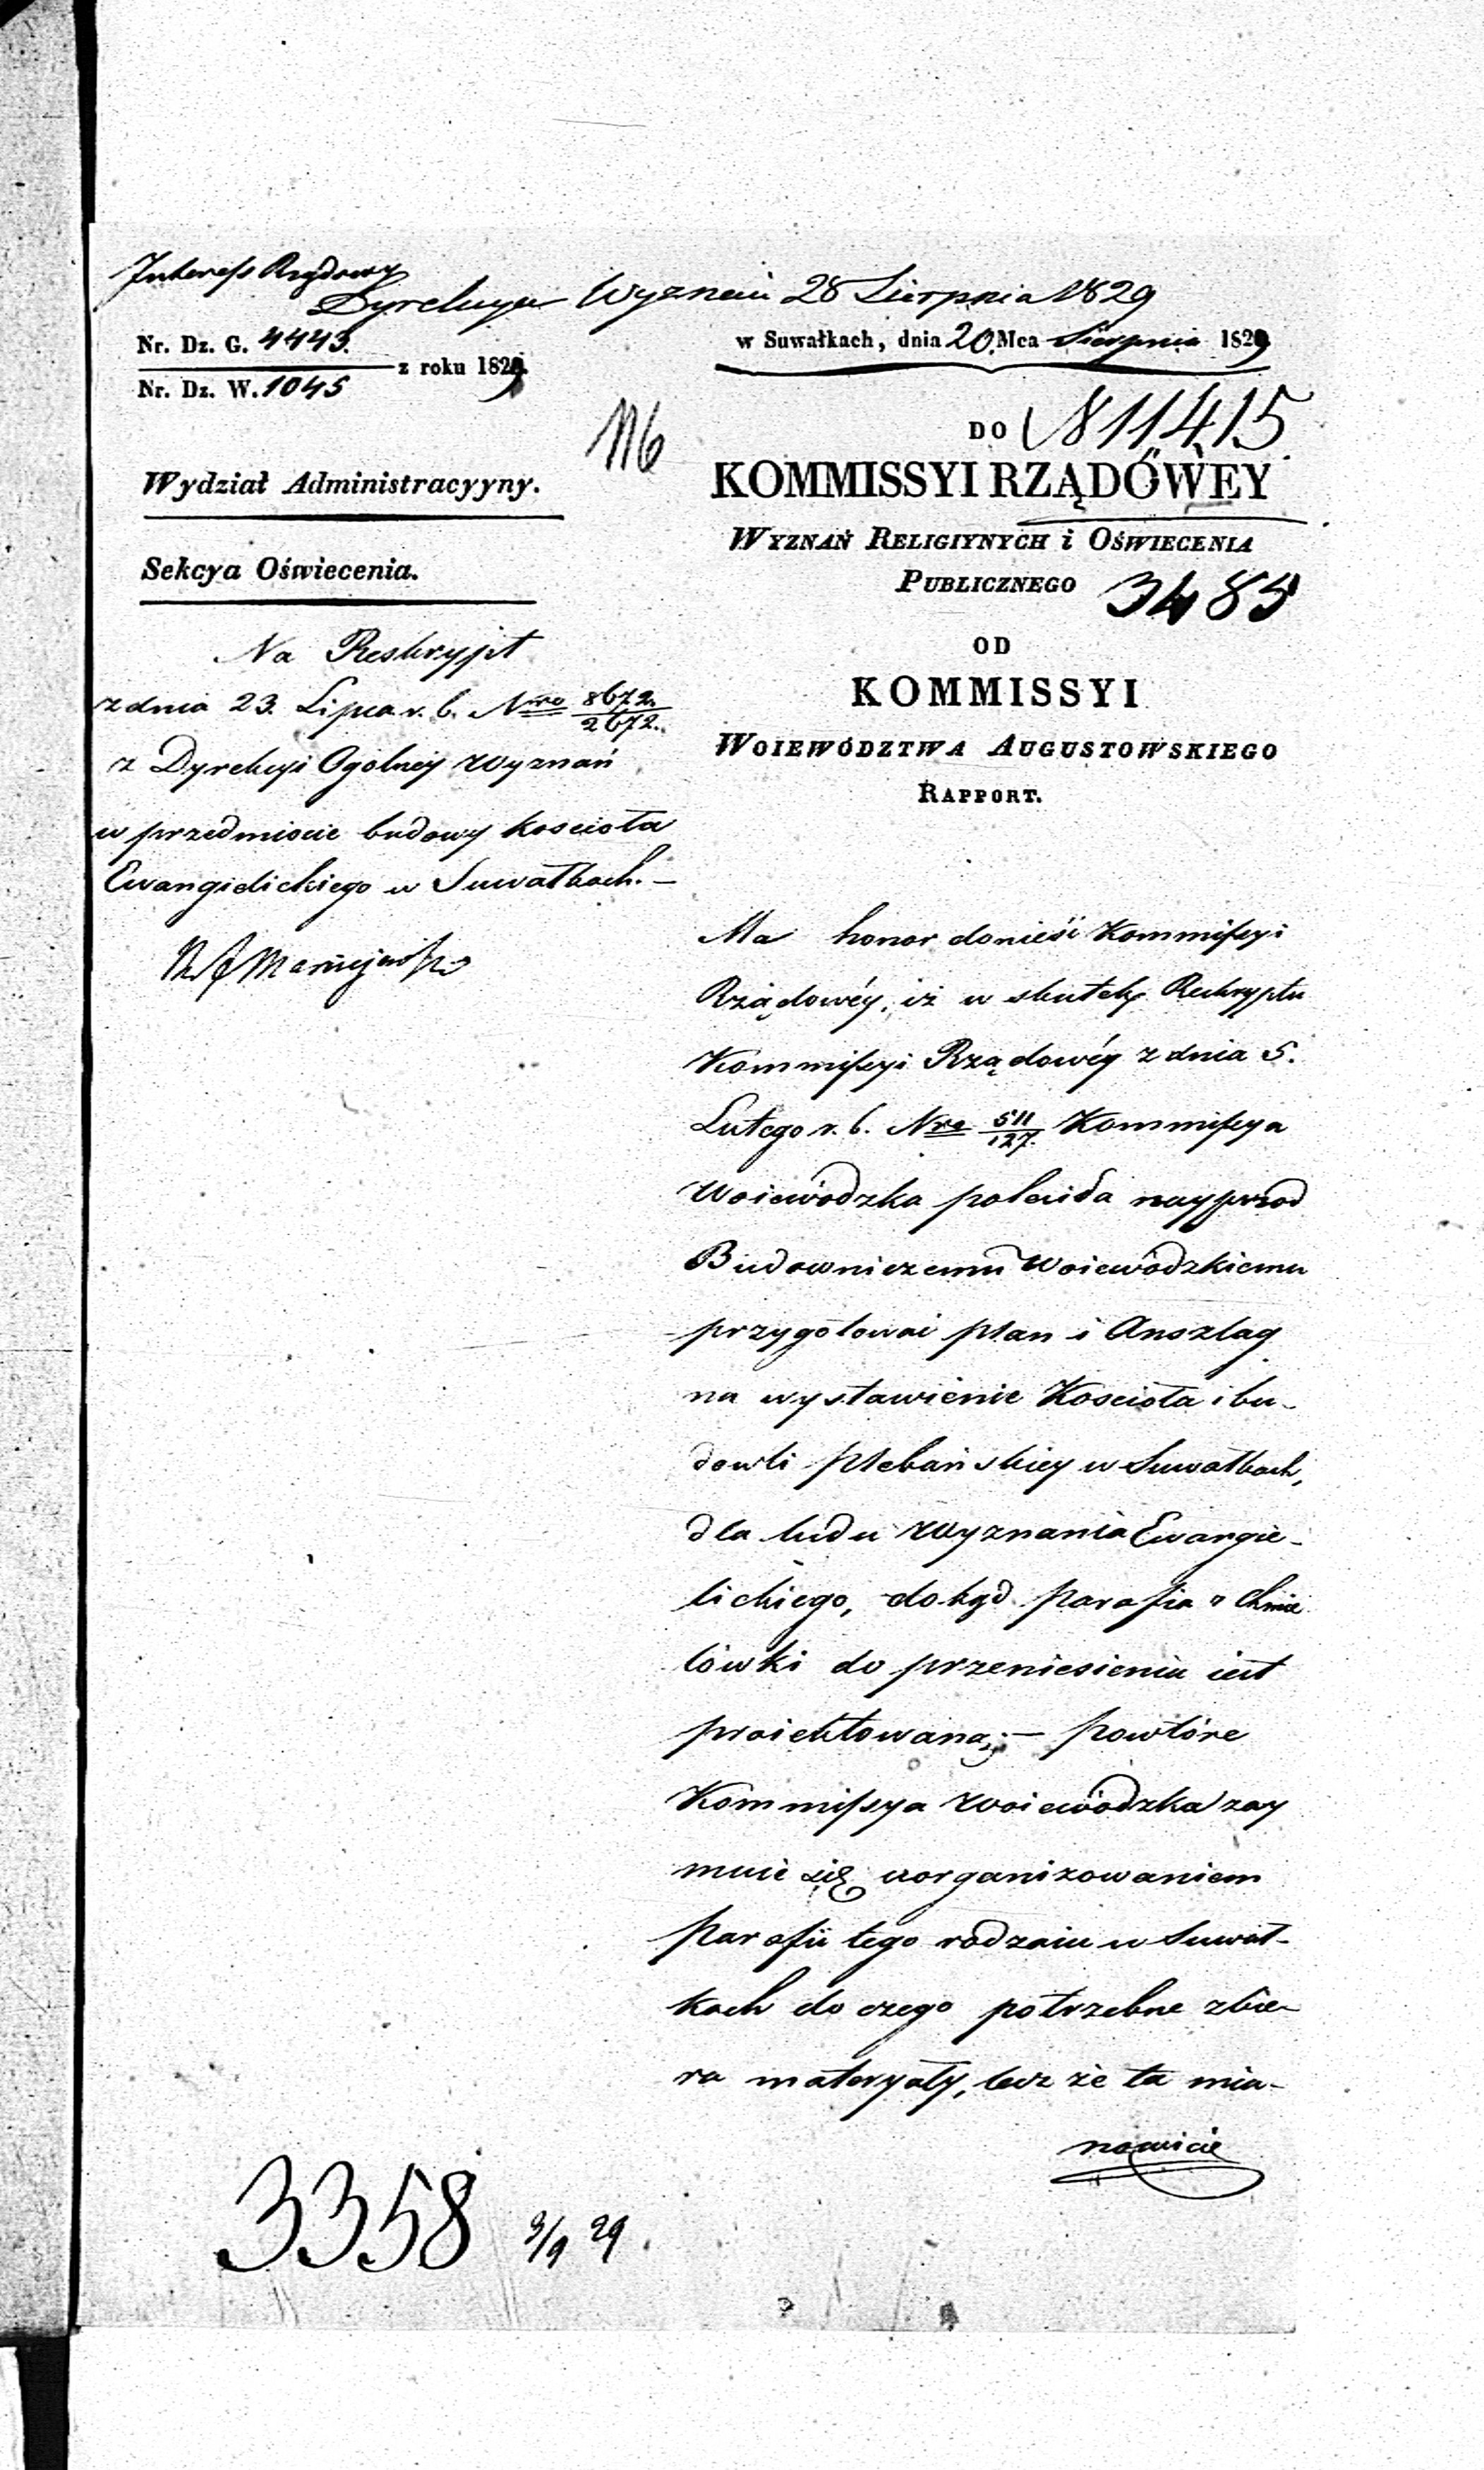 Interess Rządowy
Dyrekcya Wyznań 28 Sierpnia 1829
Nr. Dz. G. 4443.
Nr. Dz. W. 1045
z roku 1829.
w Suwałkach, dnia 20. Mca Sierpnia 1829
116
DO
11415
KOMMISSYI RZĄDOWEY
WYZNAŃ RELIGIYNYCH i OŚWIECENIA
PUBLICZNEGO
3485
OD
KOMMISSYI
WOIEWÓDZTWA AUGUSTOWSKIEGO
RAPPORT.
Wydział Administracyyny.
Sekcya Oświecenia.
Na Reskrypt
z dnia 23. Lipca r. b. Nro 8672./2672.
z Dyrekcyi Ogolney Wyznań
w przedmiocie budowy kosciola
Ewangielickiego w Suwałkach. —
Ma honor donieść Kommissyi
Rządowéy, iż w skutek Reskryptu
Kommissyi Rządowéy z dnia 5.
Lutego r. b. Nro 511/127. Kommissya
Woiewodzka poleciła nayprzod
Budowniczemu Woiewodzkiemu
przygotować plan i Anszlag
na wystawienie Kosciola i bu-
dowli plebańskiey w Suwałkach,
dla ludu Wyznania Ewangie-
lickiego, dokąd parafia z Chmie
lówki do przeniesienia iest
proiektowana; — powtóre
Kommissya Woiewódzka zay
muie się uorganizowaniem
parafii tego rodzaiu w Suwał-
kach do czego potrzebne zbie-
ra materyały, lecz że ta mia-
nowicie
3358 9/9 29.